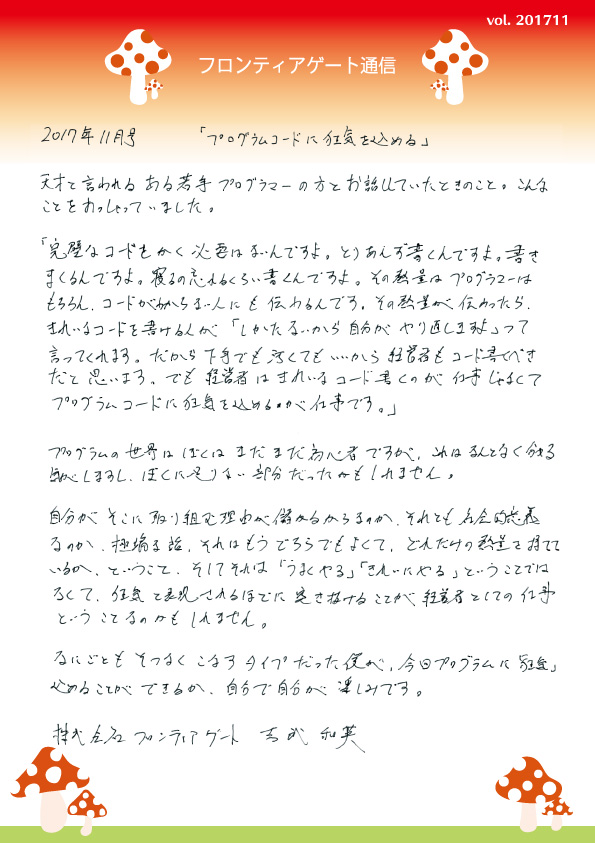 vol. 201711
フロンティアゲート通信
2017年11月号 「プログラムコードに狂気を込める」
天才と言われる ある若手プログラマーの方とお話していたときのこと。こんな
ことをおっしゃっていました。
「完璧なコードをかく必要はないんですよ。とりあえず書くんですよ。書き
まくるんですよ。寝るの忘れるくらい書くんですよ。その熱量はプログラマーは
もちろん、コードがわからない人にも伝わるんです。その熱量が伝わったら、
きれいなコードを書ける人が「しかたないから自分がやり直しますよ」って
言ってくれます。だから下手でも汚くてもいいから経営者もコード書くべき
だと思います。でも経営者はきれいなコード書くのが仕事じゃなくて
プログラムコードに狂気を込めるのが仕事です。」
プログラムの世界はぼくはまだまだ初心者ですが、これはなんとなく分かる
気がしますし、ぼくに足りない部分だったかもしれません。
自分がそこに取り組む理由が儲かるからなのか、それとも社会的意義
なのか、極端な話、それはもうどちらでもよくて、どれだけの熱量を持てて
いるか、ということ、そしてそれは「うまくやる」「きれいにやる」ということでは
なくて、狂気と表現されるほどに突き抜けることが経営者としての仕事
ということなのかもしれません。
なにごともそつなくこなすタイプだった僕が、今回プログラムに「狂気」
込めることができるか、自分で自分が楽しみです。
株式会社フロンティアゲート 吉成 和英